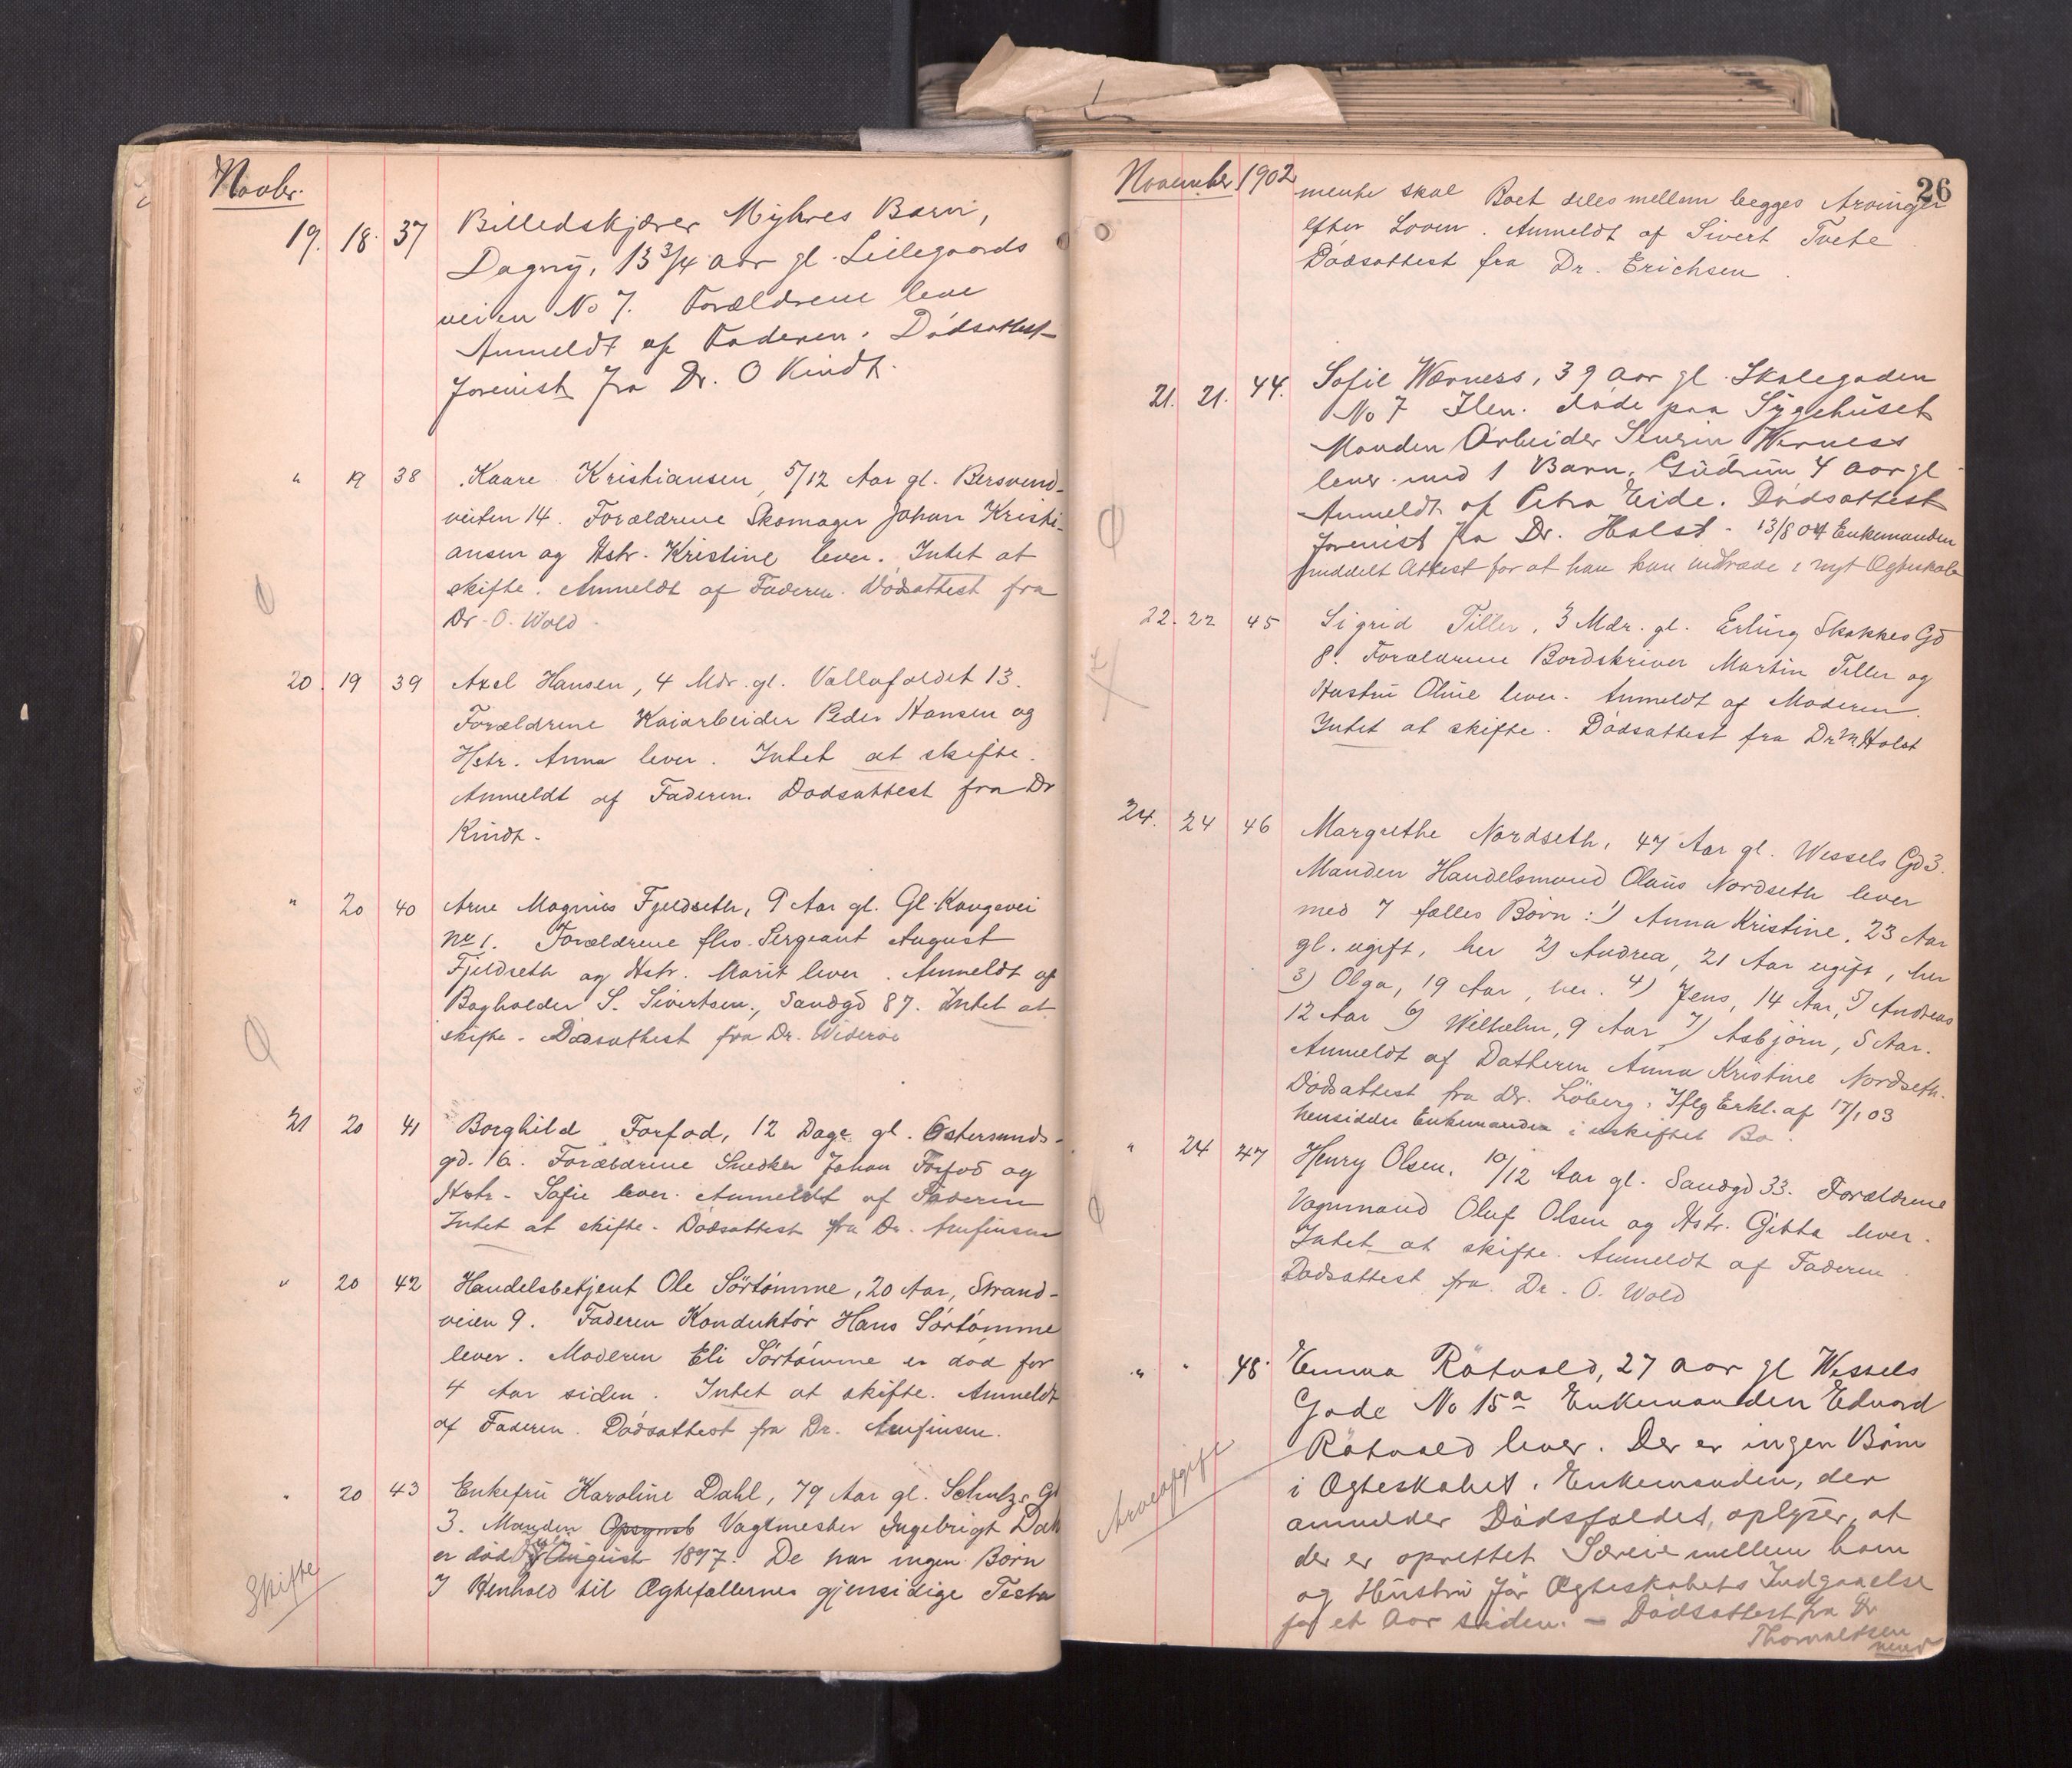 Novbr.
19. 18. 37 Billedskjærer Myhres Barn,
Dagny, 13 3/4 Aar gl. Lillegaards
veien No 7. Forældrene leve
Anmeldt af Faderen. Dødsattest
forevist fra Dr. O Kindt.
" 19 38 Kaare Kristiansen, 5/12 Aar gl. Bersvend-
veiten 14. Forældrene Skomager Johan Kristi-
ansen og Hstr. Kristine lever. Intet at
skifte. Anmeldt af Faderen. Dødsattest fra
Dr. O. Wold.
20. 19 39 Axel Hansen, 4 Mdr. gl. Vollafaldet 13.
Forældrene Kaiarbeider Peder Hansen og
Hstr. Anna lever. Intet at skifte.
Anmeldt af Faderen. Dødsattest fra Dr
Kindt.
" 20 40 Arne Magnus Fjeldseth, 9 Aar gl. Gl. Kongevei
No 1. Forældrene fhv. Sergeant August
Fjeldseth og Hstr. Marit lever. Anmeldt af
Bogholder S. Sivertsen, Sandgd 87. Intet at
skifte. Dødsattest fra Dr. Widerøe
21 20 41 Borghild Forfod, 12 Dage gl. Østersunds-
gd. 16. Forældrene Snedker Johan Forfod og
Hstr. Sofie lever. Anmeldt af Faderen
Intet at skifte. Dødsattest fra Dr. Arnfinsen
" 20 42 Handelsbetjent Ole Sörtömme, 20 Aar, Strand-
veien 9. Faderen Konduktör Hans Sörtömme
lever. Moderen Eli Sörtömme er död for
4 Aar siden. Intet at skifte. Anmeldt
af Faderen. Dødsattest fra Dr. Arnfinsen.
" 20 43 Enkefru Karoline Dahl, 79 Aar gl. Schulz's Gd
3. Manden Opsynsb Vagtmester Ingebrigt Dah
er död August 1897. De har ingen Børn
I Henhold til Ægtefællernes gjensidige Testa
Skifte
November 1902
26
mente skal Boet deles mellem begges Arvinger
efter Loven. Anmeldt af Sivert Tvete.
Dødsattest fra Dr. Erichsen.
21. 21. 44. Sofie Werness, 39 Aar gl. Skolegaden
No 7 Ilen. døde paa Sygehuset
Manden Arbeider Sevrin Werness
lever med 1 Barn, Gudrun 4 Aar gl.
Anmeldt af Petra Eide. Dødsattest
forevist fra Dr. Holst. 13/8 04 Enkemanden
meddelt Attest for at han kan indtræde i nyt Ægteskab
22. 22 45 Sigrid Tiller, 3 Mdr. gl. Erling Skakkes Gd
8. Forældrene Bordskriver Martin Tiller og
Hustru Oline lever. Anmeldt af Moderen.
Intet at skifte. Dødsattest fra Dr M Holst
24. 24 46 Margrethe Nordseth, 47 Aar gl. Wessels Gd 3.
Manden Handelsmand Olaus Nordseth lever
med 7 fælles Børn: 1) Anna Kristine, 23 Aar
gl. ugift, her 2) Andrea, 21 Aar ugift, her
3) Olga, 19 Aar, her. 4) Jens, 14 Aar, 5) Andreas
12 Aar 6) Wilhelm, 9 Aar 7) Asbjörn, 5 Aar.
Anmeldt af Datteren Anna Kristine Nordseth.
Dødsattest fra Dr. Löberg. Iflg Erkl. af 17/1 03
hensidder Enkemanden i uskiftet Bo.
" 24 47 Henry Olsen, 10/12 Aar gl. Sandgd 33. Forældrene
Vognmand Oluf Olsen og Hstr. Gitta lever.
Intet at skifte. Anmeldt af Faderen.
Dødsattest fra Dr. O. Wold
" " 48. Emma Råtvold, 27 Aar gl Wessels
Gade No 15a Enkemanden Edvard
Råtvold lever. Der er ingen Börn
i Ægteskabet. Enkemanden, der
anmelder Dødsfaldet, oplyser, at
der er oprettet Særeie mellem ham
og Hustru før Ægteskabets Indgaaelse
for et Aar siden. — Dødsattest fra Dr
Thorvaldsen
Arveafgift